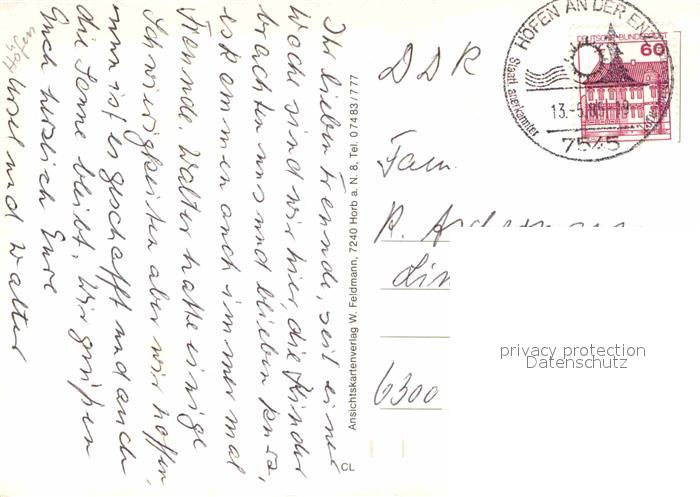 Ihr lieben Freunde, seit einer
Woche sind wir hier die Kinder
brachten uns und blieben kurz,
es kommen auch immer mal
Freunde. Walter hatte einige
Schwierigkeiten aber wir hoffen,
nun ist es geschafft und auch
die Sonne bleibt. Wir grüßen
Euch herzlich Eure
Ursel und Walter
Ansichtskartenverlag W. Feldmann, 7240 Horb a. N. 8, Tel. 07483/777
CL
DDR
Fam.
R.
6300
HÖFEN AN DER ENZ
Staatl. anerkannter
13.-5.85-19
7545
DEUTSCHE BUNDESPOST
60
privacy protection
Datenschutz